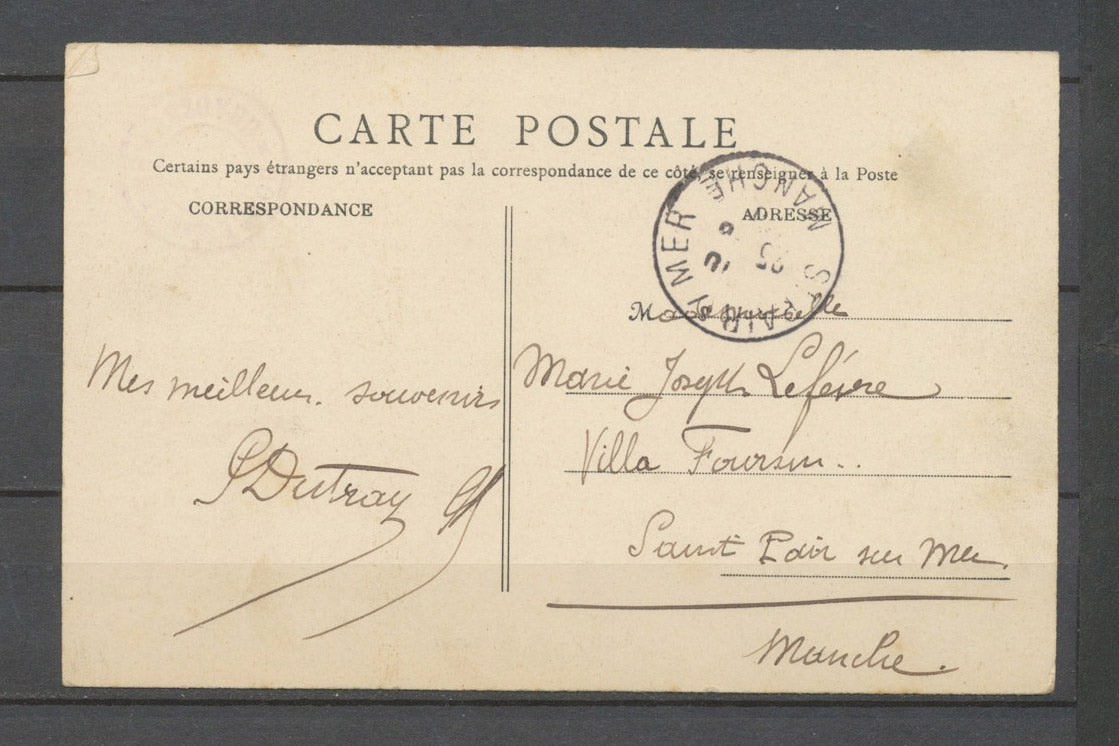 CARTE POSTALE
Certains pays étrangers n'acceptant pas la correspondance de ce côté, se renseigner à la Poste
CORRESPONDANCE
ADRESSE
MANCHE
MER
Mademoiselle
Mes meilleurs souvenirs
Marie Joseph Lefèvre
Villa
Dutray
Saint Pair sur Mer.
Manche.